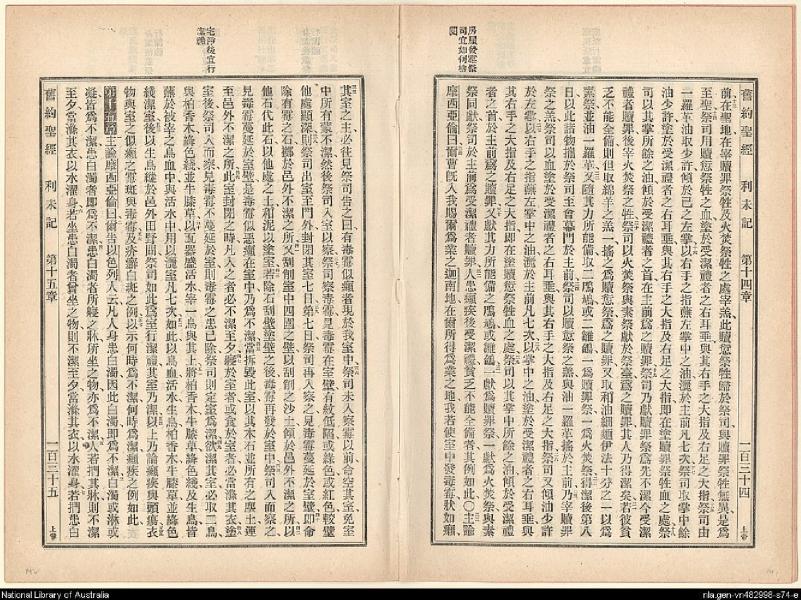 舊約聖經 利未記 第十四章 一百三十四
前在聖地在宰贖罪祭牲及火焚祭牲之處宰羔此贖愆祭牲歸於祭司與贖罪祭牲無異是爲
至聖祭司用贖愆祭牲之血塗於受潔禮者之右耳垂與其右手之大指及右足之大指祭司由
一羅革油取少許傾於己之左掌以右手之指蘸左掌中之油灑於主前凡七次祭司取掌中餘
油少許塗於受潔禮者之右耳垂與其右手之大指及右足之大指即在塗贖罪祭牲血之處祭
司以其掌所餘之油傾於受潔禮者之首在主前爲之贖罪祭司乃獻贖罪祭爲先不潔今受潔
禮者贖罪後宰火焚祭之牲祭司以火焚祭與素祭獻於祭臺爲之贖罪其人乃得潔矣若彼貧
乏不能全備則但取綿羊之羔一搖之爲贖愆祭爲之贖罪又取和油細麵伊法十分之一以爲
素祭並油一羅革又隨其力所能備取二鳲鳩或二雛鴿一爲贖罪祭一爲火焚祭得潔後第八
日以此諸物攜於祭司至會幕門於主前祭司以贖愆祭之羔與油一羅革搖於主前乃宰贖罪
祭之羔祭司以血塗於受潔禮者之右耳垂與其右手之大指及右足之大指祭司又傾油少許
於左掌以右手之指蘸左掌中之油灑於主前凡七次以掌中之油塗於受潔禮者之右耳垂與
其右手之大指及右足之大指即在贖愆祭牲血之處祭司以其掌中所餘之油傾於受潔禮
者之首於主前爲之贖罪又獻其力所能備之鳲鳩或雛鴿一獻爲贖罪祭一獻爲火焚祭與素
祭同獻祭司於主前爲受潔禮者贖罪人患癩疾後受潔禮貧乏不能全備者其例如此〇主諭
摩西亞倫曰爾曹既入我賜爾爲業之迦南地在爾所得爲業之地我若使室中發毒霉狀如癩
其室之主必往見祭司告之曰有毒霉似癩者現於我室中祭司未入察霉以前命空其室免室
中所有蒙不潔然後祭司入室以察祭司察毒霉見毒霉在室壁有紋低陷或綠色或紅色較壁
他處顯深則祭司出室至門外封閉其室七日第七日祭司再入察之見毒霉蔓延於室壁即命
除有霉之石擲於邑外不潔之所又刮削室中四圍之壁以刮削之沙土傾於邑外不潔之所以
他石代此石以他處之土和泥以塗室若除石刮壁塗壁之後毒霉再發於室中祭司入而察之
見毒霉蔓延於室壁是毒霉似惡癩在室中乃爲不潔當拆毀此室以其木石並所有之塵土運
至邑外不潔之所此室封閉之時凡入之者必不潔至夕寢於室者或食於室者必當滌其衣塗
室後祭司入而察見毒霉不蔓延於室則毒霉之患已除祭司則定室爲潔欲潔其室必取二鳥
與柏香木絳色綫並牛膝草以瓦器盛活水宰一鳥與其上將柏香木牛膝草絳色綫及生鳥皆
蘸於被宰之鳥血中與活水中用以灑室凡七次如此以鳥血活水生鳥柏香木牛膝草並絳色
綫潔室後以生鳥縱於邑外田野間祭司如此爲室行潔禮其室乃潔以上乃論癩疾與頭瘍衣
物與室之似癩之霉斑與毒霉及赤癬白斑之例以示何時爲不潔何時爲潔癩疾之例如此
第十五章 主諭摩西亞倫曰爾告以色列人云凡人身患白濁因此白濁即爲不潔白濁或淋或
凝皆爲不潔患白濁者即爲不潔患白濁者所寢之牀所坐之物亦爲不潔人若捫其牀則不潔
至夕當滌其衣以水濯身若坐患白濁者嘗坐之物則不潔至夕當滌其衣以水濯身若捫患白
舊約聖經 利未記 第十五章 一百三十五
National Library of Australia
nla.gen-vn482998-s74-e